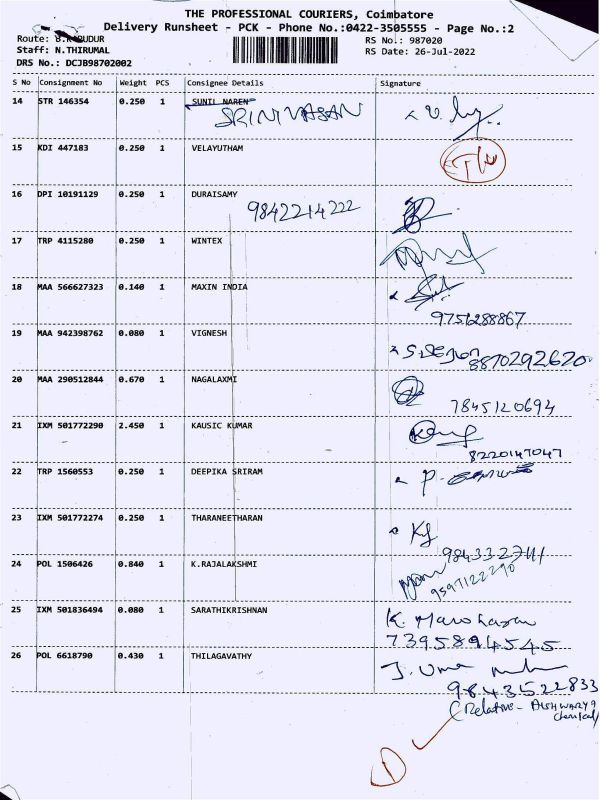 THE PROFESSIONAL COURIERS, Coimbatore
Delivery Runsheet - PCK - Phone No.:0422-3505555 - Page No.:2
Route: B.K.PUDUR
RS No.: 987020
Staff: N.THIRUMAL
RS Date: 26-Jul-2022
DRS No.: DCJB98702002
S No Consignment No Weight PCS Consignee Details Signature
14 STR 146354 0.250 1 SUNIL NAREN
SRINIVASAN
15 KDI 447183 0.250 1 VELAYUTHAM
16 DPI 10191129 0.250 1 DURAISAMY
9842214222
17 TRP 4115280 0.250 1 WINTEX
18 MAA 566627323 0.140 1 MAXIN INDIA
9751288867
19 MAA 942398762 0.080 1 VIGNESH
8870292620
20 MAA 290512844 0.670 1 NAGALAXMI
7845120694
21 IXM 501772290 2.450 1 KAUSIC KUMAR
8220147047
22 TRP 1560553 0.250 1 DEEPIKA SRIRAM
23 IXM 501772274 0.250 1 THARANEETHARAN
24 POL 1506426 0.840 1 K.RAJALAKSHMI
9597122290
25 IXM 501836494 0.080 1 SARATHIKRISHNAN
K. Manoharan
7395894545
26 POL 6618790 0.430 1 THILAGAVATHY
J. Uma
9843522833
(Relative - AISHWARYA
chemical)